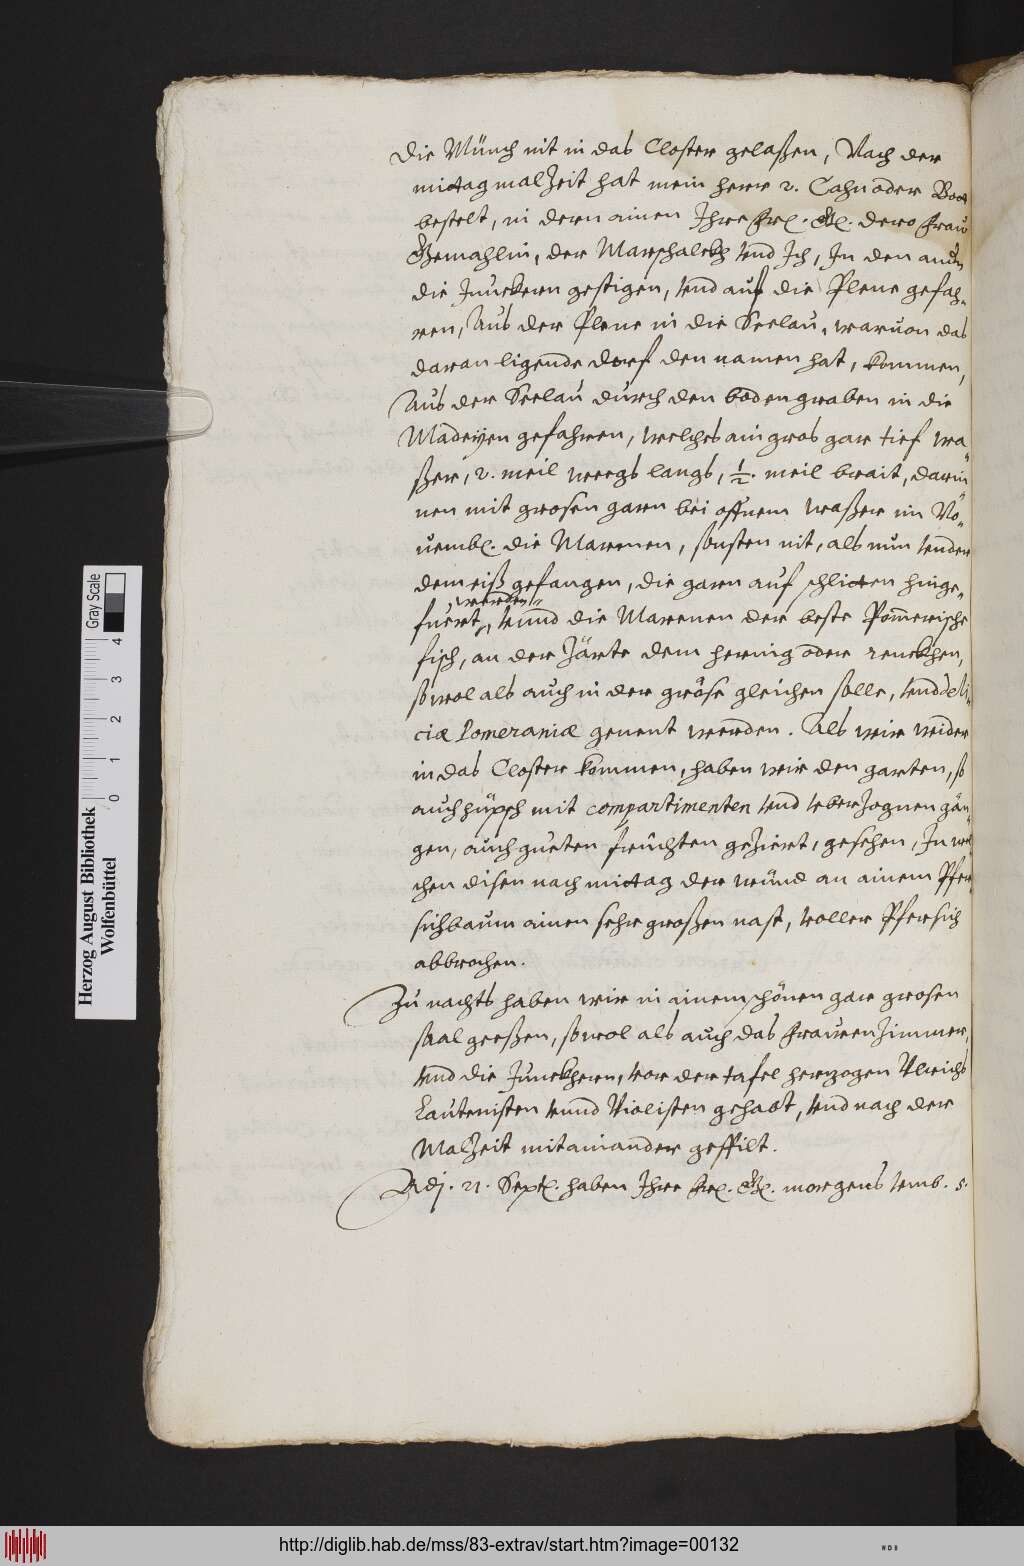 die Münch nit in das Closter gelaßen, Nach der
mittag malzeit hat mein herr 2. Cahn oder Boot
bestelt, in dern ainen Ihre Frl. Gl. dero Fraw
Gemahlin, der Marschalckh vnd Ich, In den andn
die Junckern gestigen, vnd auf die Plene gefah-
ren, Aus der Plene in die Seelau, waruon das
daran ligende dorf den namen hat, kommen,
Aus der Seelau durch den bodengraben in die
Madeyen gefahren, welches ain gros gar tief wa-
ßer, 2. meil weegs langs, 1/2. meil brait, darin
nen mit grosen garn bei offnem waßer im No-
uembl. die Marenen, sonsten nit, als nun vnder
dem eiß gefangen, die garn auf schlitten hinge-
werden
fuert, vnnd die Marenen der beste Pom̄erische
fisch, an der zärte dem hering oder renckhen,
sowol als auch in der gröse gleichen solle, vnd deli-
ciæ Pomeraniæ genent werden. Als wir wider
in das Closter kommen, haben wir den garten, so
auch hüpsch mit compartimenten vnd vberzognen gän-
gen, auch gueten früchten geziert, gesehen, In wel
chen disen nach mittag der wünd an ainem Pfer-
sichbaum ainen sehr großen nast, voller Pfersich
abbrochen.
Zu nachts haben wir in ainem schönen gar grosen
saal geeßen, sowol als auch das Frawenzimmer,
vnd die Junckhern, vor der tafel herzogen Vlrichs
Lautenisten vnnd Violisten gehabt, vnd nach der
Malzeit mit ainander gespilt.
Adj. 21. Septl. haben Ihre Frl. Gl. morgens vmb. 5.
Herzog August Bibliothek
Wolfenbüttel
Gray Scale
0 1 2 3 4
http://diglib.hab.de/mss/83-extrav/start.htm?image=00132
WDB